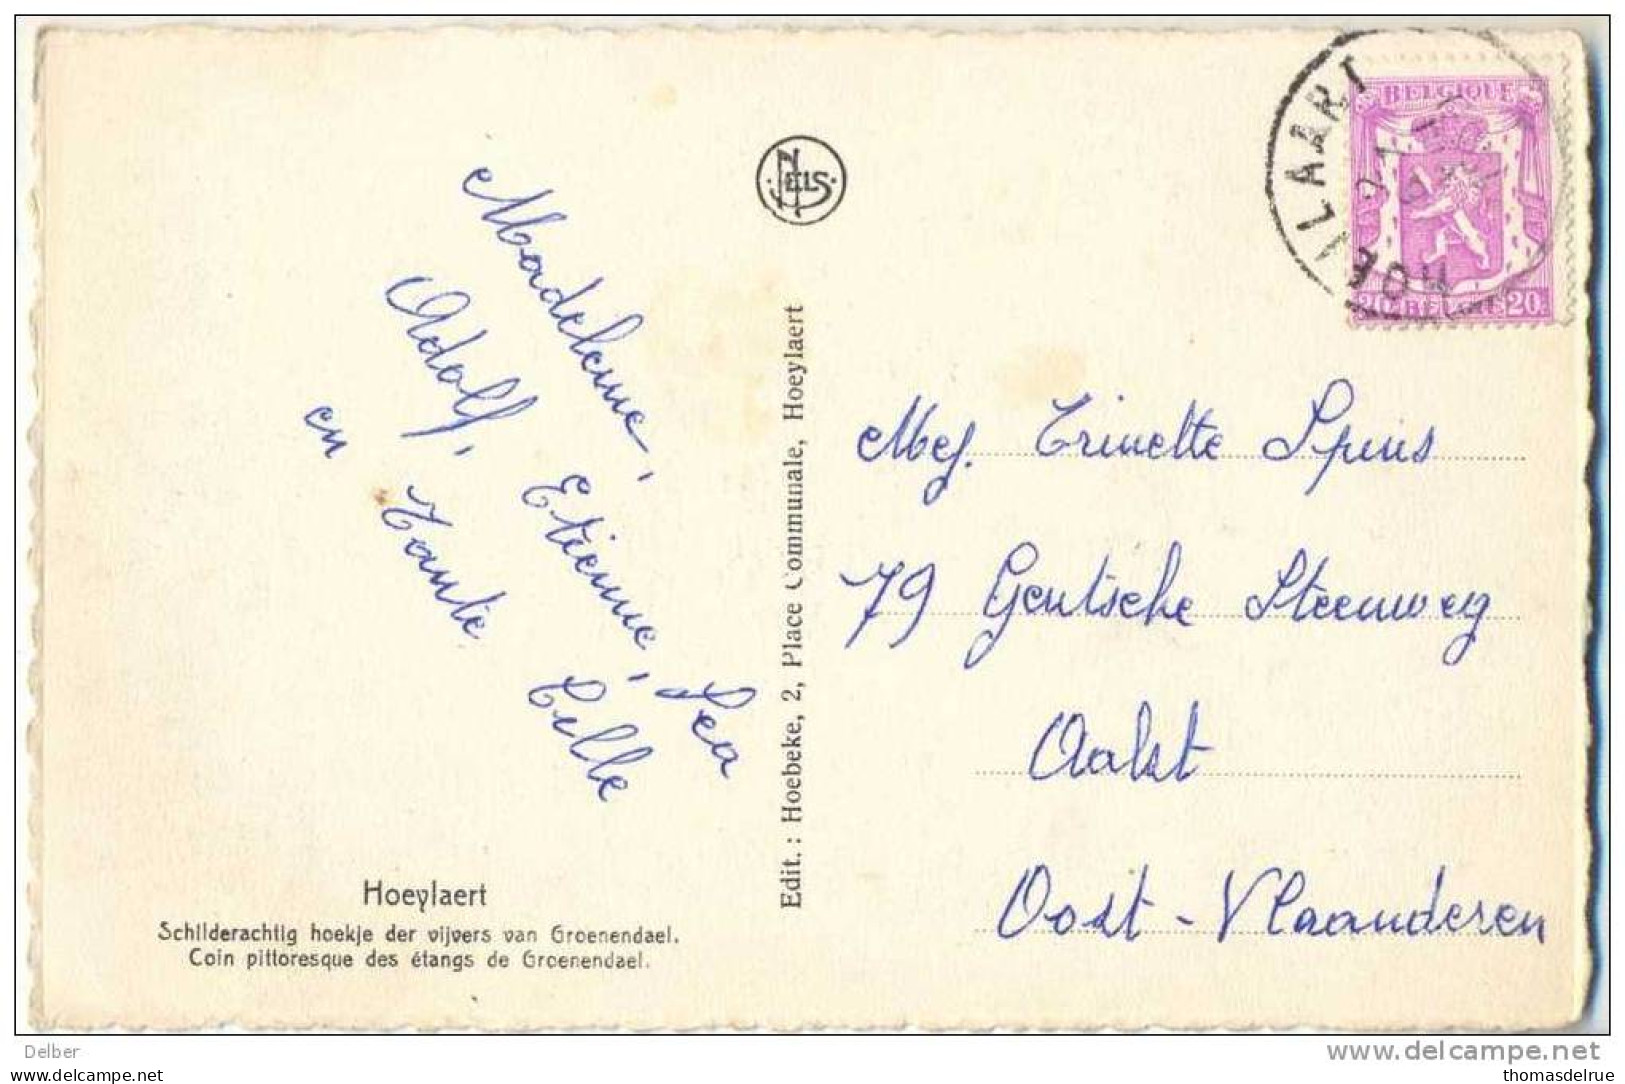 Madeleine,
Adolf, Etienne, Lea
en Tante Cille
NELS
Edit. : Hoebeke, 2, Place Communale, Hoeylaert
HOEILAART
BELGIQUE
20 BELGIE 20
Mej. Trinette Spins
79 Gentsche Steenweg
Aalst
Oost-Vlaanderen
Hoeylaert
Schilderachtig hoekje der vijvers van Groenendael.
Coin pittoresque des étangs de Groenendael.
Delber
www.delcampe.net
thomasdelrue